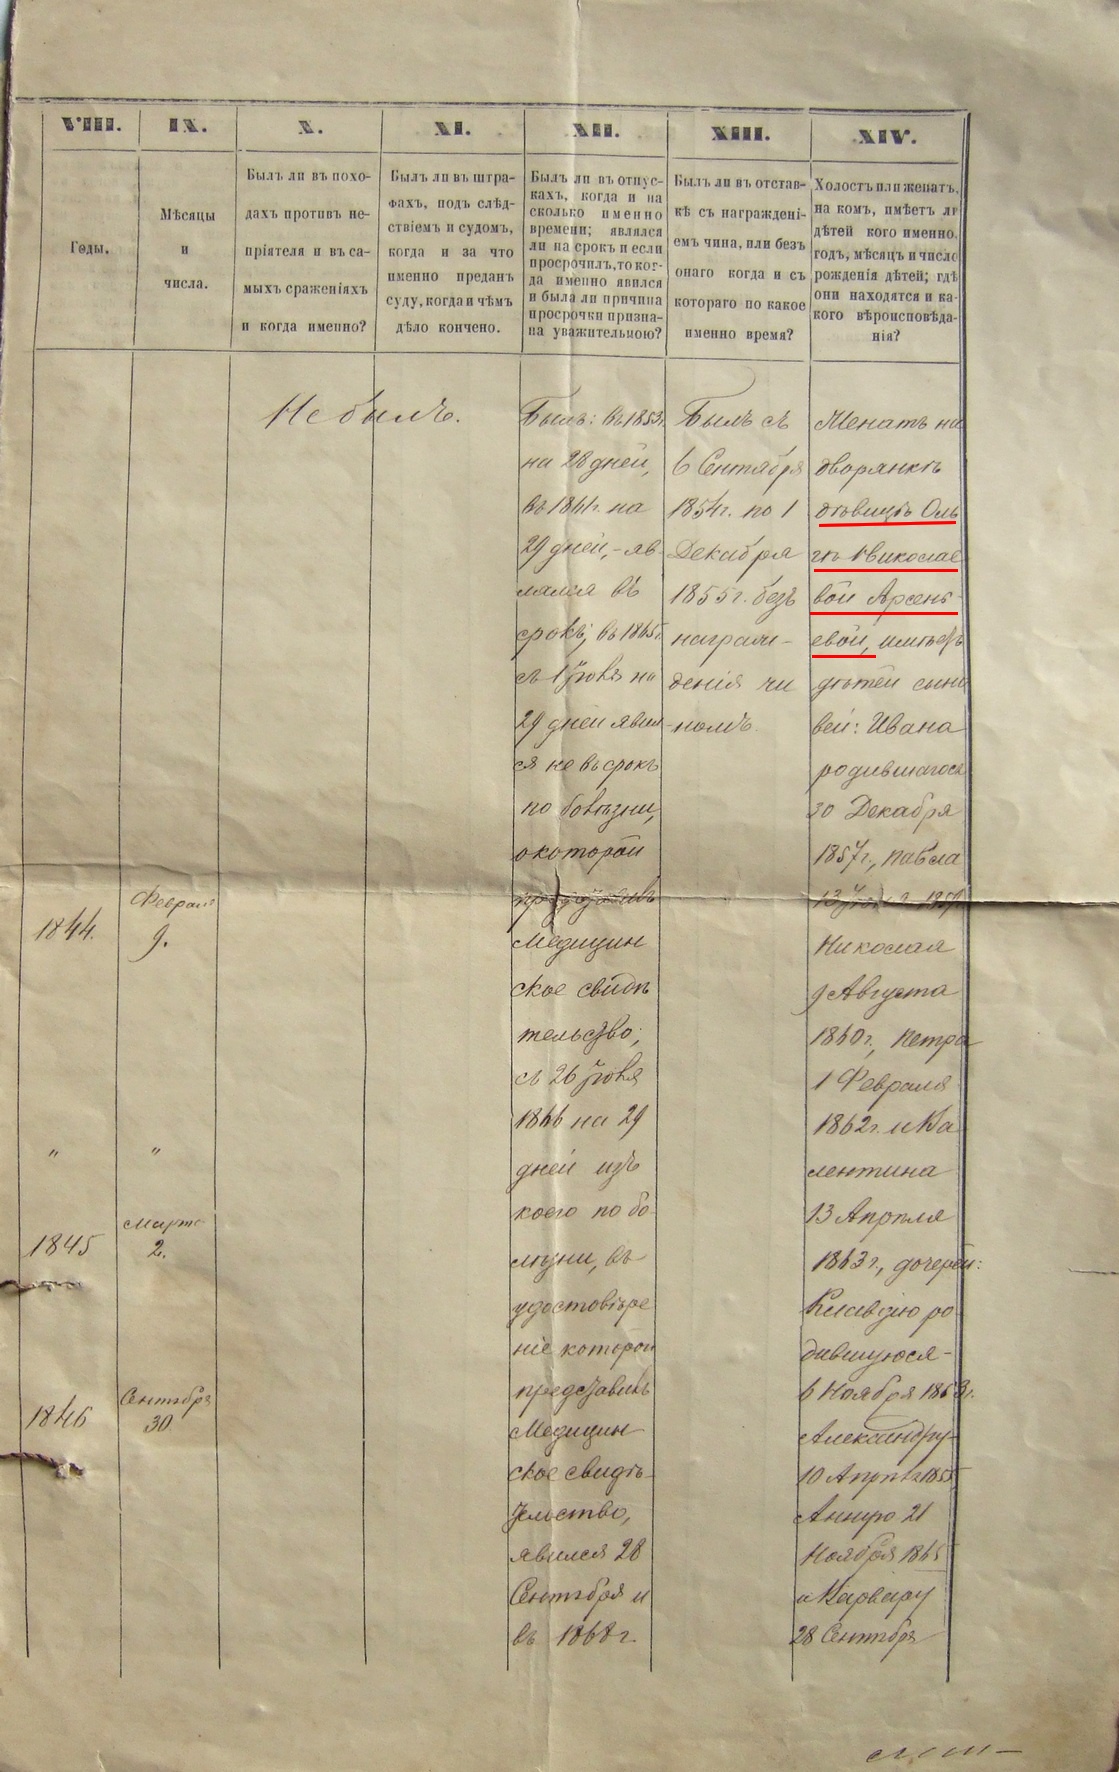 VIII.
IX.
X.
XI.
XII.
XIII.
XIV.
Годы.
Мѣсяцы
и
числа.
Былъ ли въ похо-
дахъ противъ не-
пріятеля и въ са-
мыхъ сраженіяхъ
и когда именно?
Былъ ли въ штра-
фахъ, подъ слѣд-
ствіемъ и судомъ,
когда и за что
именно преданъ
суду, когда и чѣмъ
дѣло кончено.
Былъ ли въ отпус-
кахъ, когда и на
сколько именно
времени; являлся
ли на срокъ и если
просрочилъ, то ког-
да именно явился
и была ли причина
просрочки призна-
на уважительною?
Былъ ли въ отстав-
кѣ съ награждені-
емъ чина, или безъ
онаго когда и съ
котораго по какое
именно время?
Холостъ или женатъ,
на комъ, имѣетъ ли
дѣтей кого именно,
годъ, мѣсяцъ и число
рожденія дѣтей; гдѣ
они находятся и ка-
кого вѣроисповѣда-
нія?
1844.
Февраля
9.
"
"
1845
Марта
2.
1846
Сентября
30
Не былъ.
Былъ: въ 1853г.
на 28 дней,
въ 1861г. на
29 дней, - яв
лялся въ
срокъ; въ 1865г.
съ 1 Іюня на
29 дней явил
ся не въ срокъ
по болѣзни,
о которой
представилъ
Медицин
ское свидѣ
тельство;
съ 26 Іюня
1866 на 29
дней изъ
коего по бо-
лѣзни, въ
удостовѣре
ніе которой
представилъ
Медицин
ское свидѣ-
тельство,
явился 28
Сентября и
въ 1868г.
Былъ съ
6 Сентября
1854г. по 1
Декабря
1855г. безъ
награж-
денія чи
номъ.
Женатъ на
дворянкѣ
дѣвицѣ Оль
гѣ Николае
вой Арсень-
евой, имѣетъ
дѣтей сыно
вей: Ивана
родившагося
30 Декабря
1857г., Павла
13 1859
Николая
9 Августа
1860г., Петра
1 Февраля
1862г. и Ва
лентина
13 Апрѣля
1863г., дочерей:
Клавдію ро
дившуюся -
6 Ноября 1853г.
Александру
10 Апрѣля 1855
Анну 21
Ноября 1865
и Варвару
28 Сентября